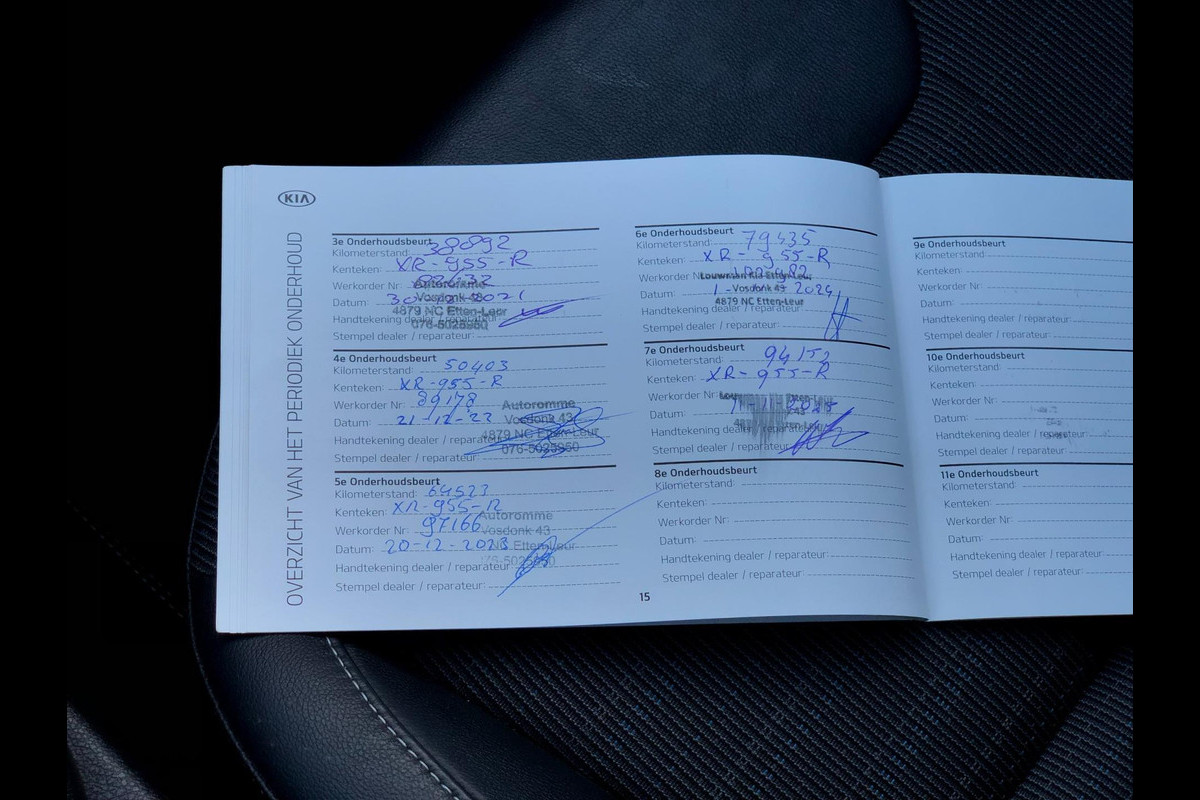 KIA
OVERZICHT VAN HET PERIODIEK ONDERHOUD
3e Onderhoudsbeurt
Kilometerstand: 38092
Kenteken: XR-955-R
Werkorder Nr:
Autoromme
Datum: 2021
Vosdonk 43
4879 NC Etten-Leur
Handtekening dealer / reparateur:
076-5025950
Stempel dealer / reparateur:
4e Onderhoudsbeurt
Kilometerstand: 50403
Kenteken: XR-955-R
Werkorder Nr: 89178
Autoromme
Datum: 21-12-22
Vosdonk 43
4879 NC Etten-Leur
Handtekening dealer / reparateur:
076-5025950
Stempel dealer / reparateur:
5e Onderhoudsbeurt
Kilometerstand: 64523
Kenteken: XR-955-R
Werkorder Nr: 97166
Autoromme
Vosdonk 43
Datum: 20-12-2023
Etten-Leur
Handtekening dealer / reparateur:
Stempel dealer / reparateur:
6e Onderhoudsbeurt
Kilometerstand: 79435
Kenteken: XR-955-R
Werkorder Nr:
Louwman Kia Etten-Leur
Datum: 2024
Vosdonk 43
4879 NC Etten-Leur
Handtekening dealer / reparateur:
Stempel dealer / reparateur:
7e Onderhoudsbeurt
Kilometerstand: 94152
Kenteken: XR-955-R
Werkorder Nr:
Etten-Leur
Datum: 2025
Handtekening dealer / reparateur:
Stempel dealer / reparateur:
8e Onderhoudsbeurt
Kilometerstand:
Kenteken:
Werkorder Nr:
Datum:
Handtekening dealer / reparateur:
Stempel dealer / reparateur:
15
9e Onderhoudsbeurt
Kilometerstand:
Kenteken:
Werkorder Nr:
Datum:
Handtekening dealer / reparateur:
Stempel dealer / reparateur:
10e Onderhoudsbeurt
Kilometerstand:
Kenteken:
Werkorder Nr:
Datum:
Handtekening dealer / reparateur:
Stempel dealer / reparateur:
11e Onderhoudsbeurt
Kilometerstand:
Kenteken:
Werkorder Nr:
Datum:
Handtekening dealer / reparateur:
Stempel dealer / reparateur: